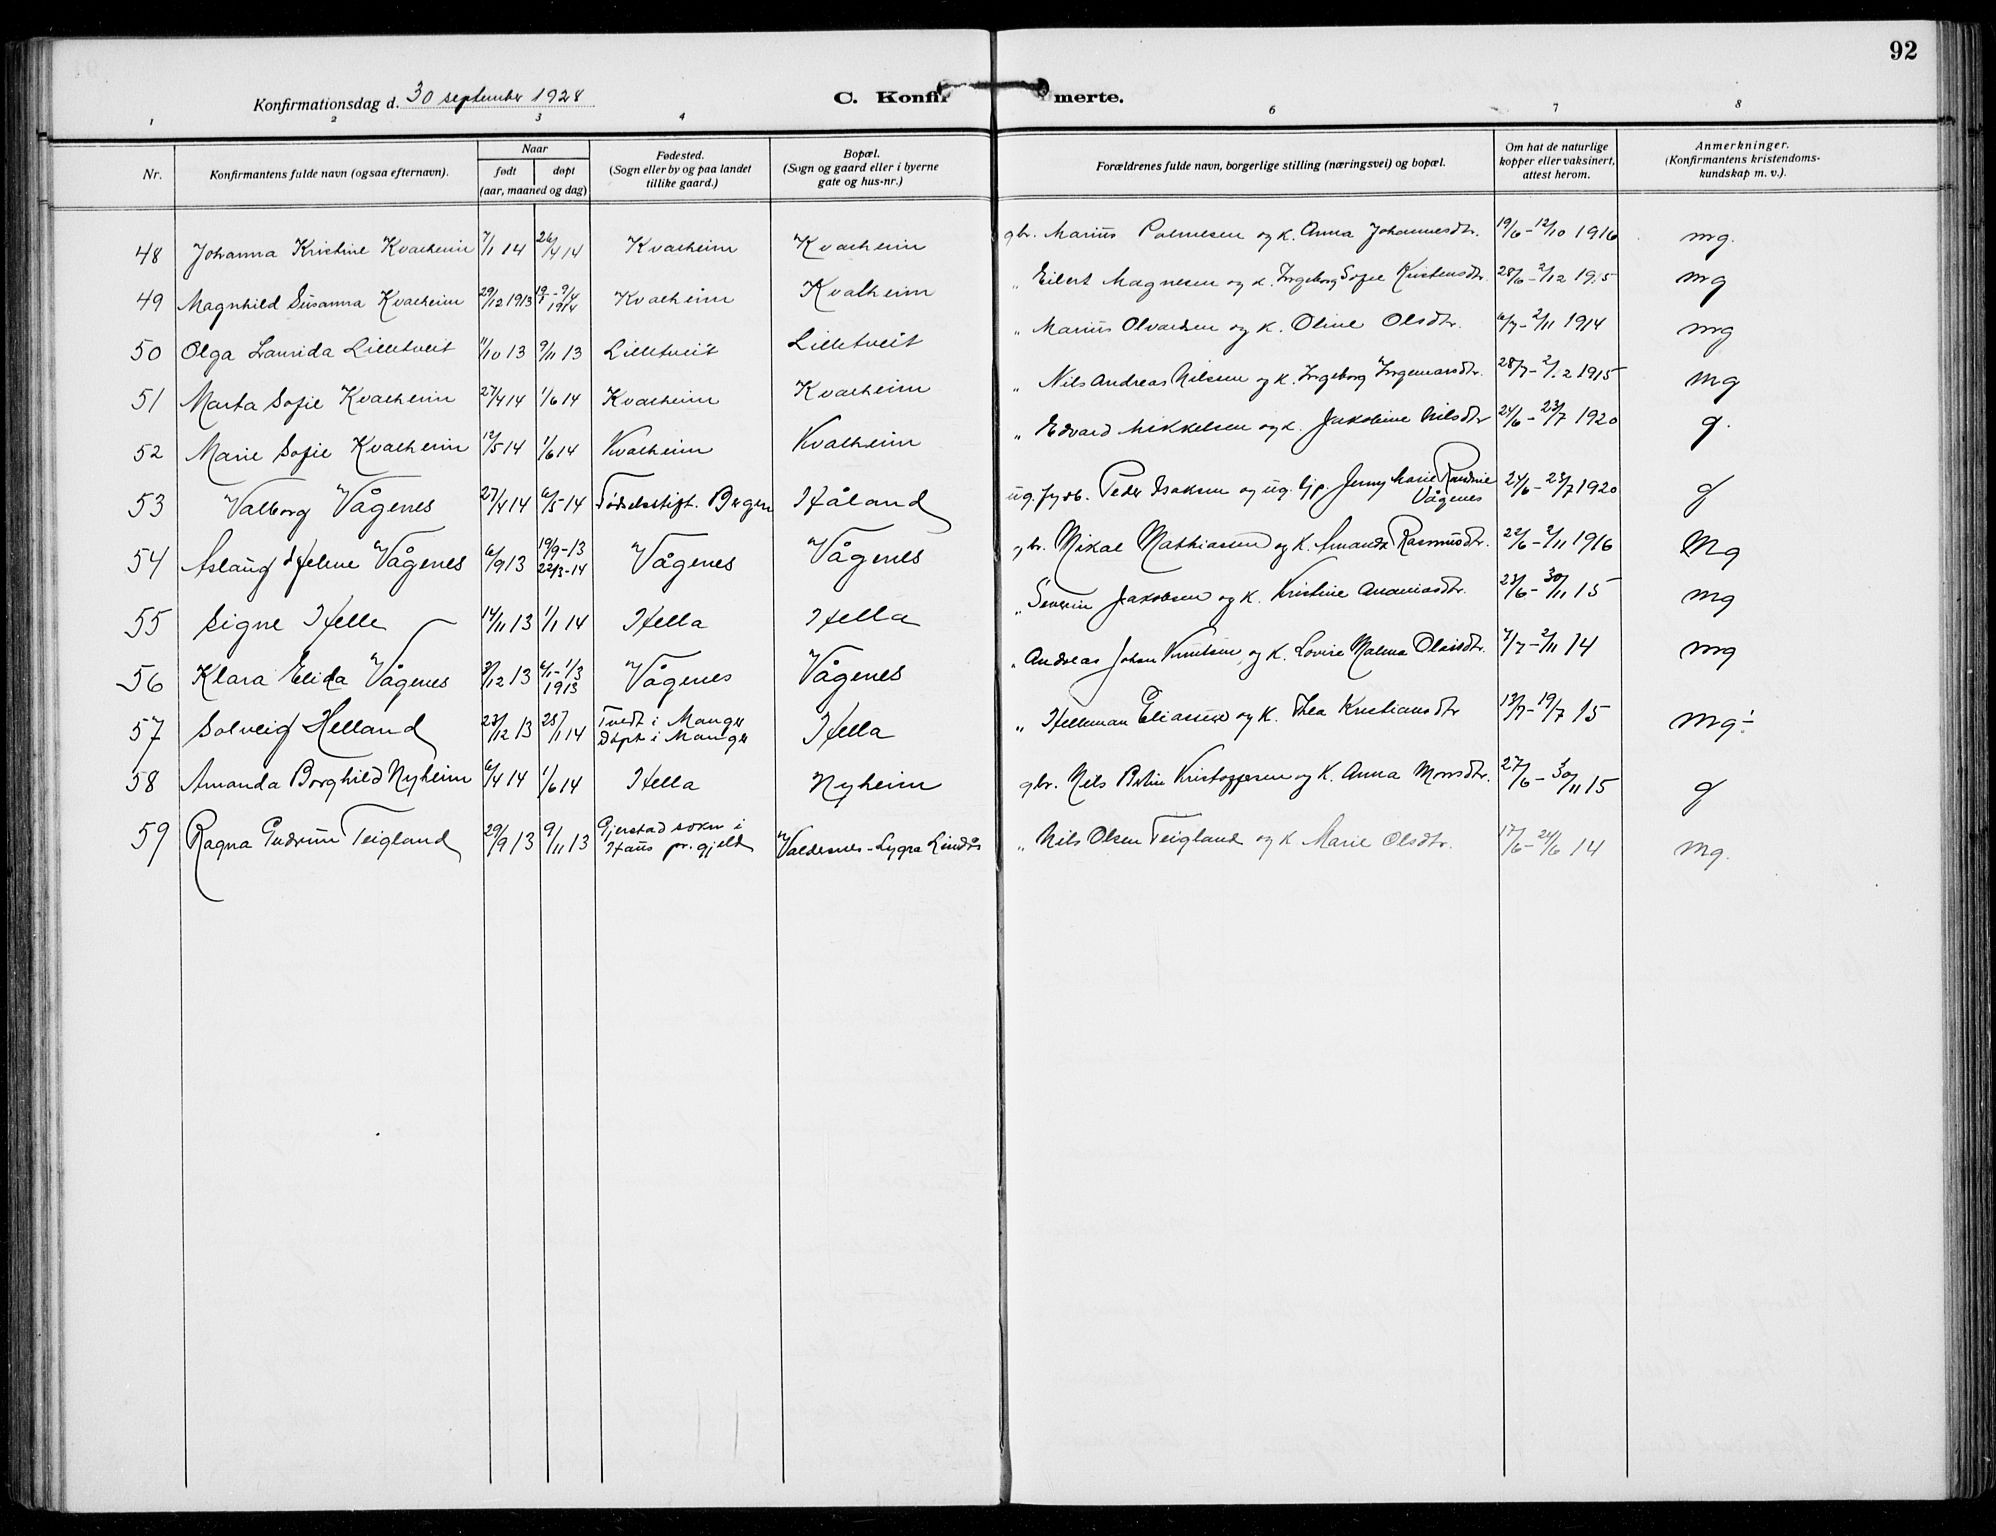 92
Konfirmationsdag d. 30 september 1928
C. Konfir merte.
1 2 3 4 6 7 8
Nr. Konfirmantens fulde navn (ogsaa efternavn). Naar født døpt (aar, maaned og dag) Fødested. (Sogn eller by og paa landet tillike gaard.) Bopæl. (Sogn og gaard eller i byerne gate og hus-nr.) Forældrenes fulde navn, borgerlige stilling (næringsvei) og bopæl. Om hat de naturlige kopper eller vaksinert, attest herom. Anmerkninger. (Konfirmantens kristendoms-kundskap m. v.).
48 Johanna Kristine Kvalheim 7/1 14 26/4 14 Kvalheim Kvalheim gbr. Marius Paulsen og k. Anna Johannesdtr. 19/6 - 12/10 1916 mg.
49 Magnhild Susanna Kvalheim 29/12 1913 - 9/4 1914 Kvalheim Kvalheim " Eilert Magnesen og k. Ingeborg Sofie Kristensdtr. 28/6 - 2/12 1915 mg
50 Olga Laurida Lilletveit 11/10 13 9/11 13 Lilletveit Lilletveit " Marius Olvarsen og k. Oline Olsdtr. 6/7 - 2/11 1914 mg
51 Marta Sofie Kvalheim 27/4 14 1/6 14 Kvalheim Kvalheim " Nils Andreas Nilsen og k. Ingeborg Ingemarsdtr. 28/7 - 2/12 1915 mg
52 Marie Sofie Kvalheim 12/5 14 1/6 14 Kvalheim Kvalheim " Edvard Mikkelsen og k. Jakobine Nilsdtr 24/6 - 23/7 1920 g.
53 Valborg Vågenes 27/4 14 6/5 14 Fødselsstift. Bergen Håland ug. fyrb. Peder Isaksen og ug. tjp. Jenny Marie Randine Vågenes 24/6 - 23/7 1920 g
54 Aslaug Helene Vågenes 6/9 13 19/9-13 22/3-14 Vågenes Vågenes gbr. Mikal Mathiasen og k. Amanda Rasmusdtr. 22/6 - 2/11 1916 Mg
55 Signe Helle 14/11 13 1/1 14 Hella Hella " Severin Jakobsen og k. Kristine Ananiasdtr. 23/6 - 30/11 15 mg
56 Klara Elida Vågenes /12 13 6/1 - 1/3 1913 Vågenes Vågenes " Andreas Johan Knutsen og k. Lovise Malena Olaisdtr. 7/7 - 2/11 14 mg
57 Solveig Helland 23/12 13 25/1 14 Tvedt i Manger døpt i Manger Hella " Helleman Eliassen og k. Thea Kristiansdtr 13/7 - 19/7 15 mg÷
58 Amanda Borghild Nyheim 6/4 14 1/6 14 Hella Nyheim gbr. Nils Bertin Kristoffersen og k. Anna Monsdtr. 27/6 - 30/11 15 g
59 Ragna Gudrun Teigland 29/9 13 9/11 13 Gjerstad sokn i Haus pr.gjeld Valdesnes - Lygra Lindås " Nils Olsen Teigland og k Marie Olsdtr. 17/6 - 24/6 14 mg.